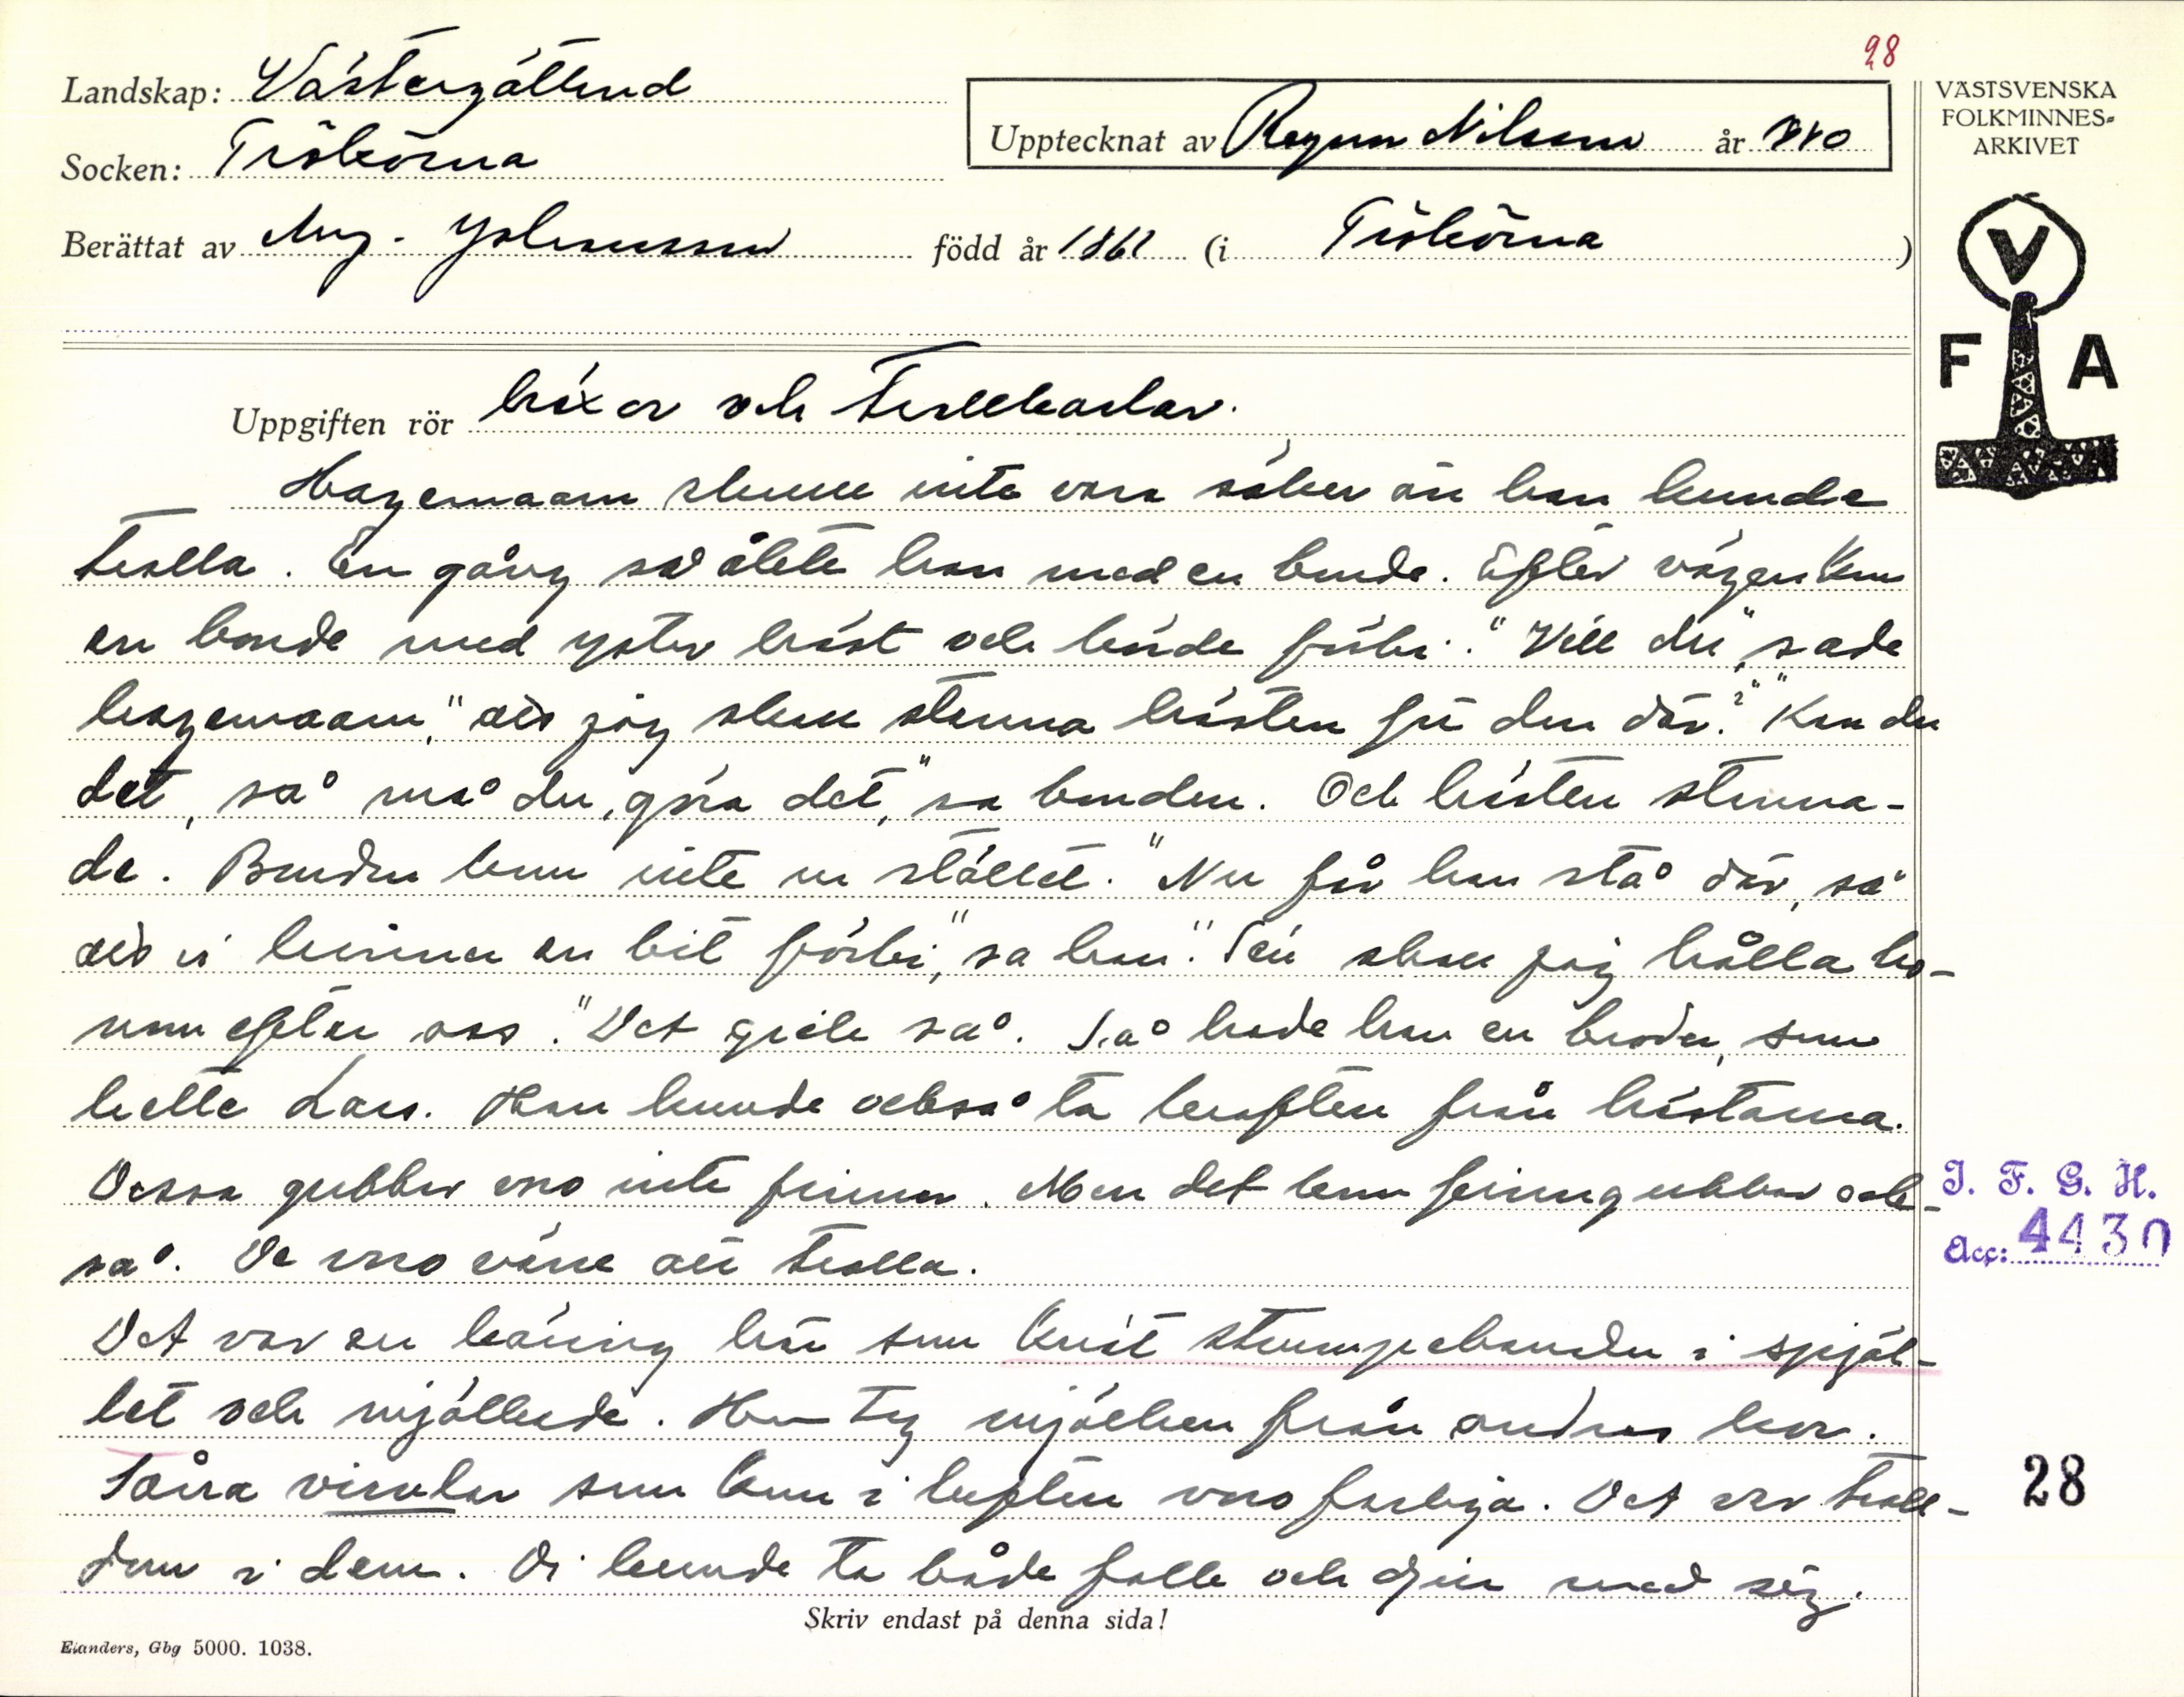 28
Landskap: Västergötland
Socken: Trökörna
Upptecknat av Ragnar Nilsson år 1940
Berättat av Aug. Johansson född år 1861 (i Trökörna)
VÄSTSVENSKA
FOLKMINNES-
ARKIVET
V
F A
Uppgiften rör häxor och trollkarlar.
Hagemaarn skulle inte vara säker än han kunde
trolla. En gång så åkte han med en bonde. Efter vägen kom
en bonde med yster häst och körde förbi. "Vill du", sade
hagemaarn, "att jag skall stanna hästen för den där?" "Kan du
det, så må du göra det," sa bonden. Och hästen stanna-
de. Bonden kom inte ur stället. "Nu får han stå där, så
att vi hinner en bit förbi," sa han. "Sen skall jag hålla ho-
nom efter oss." Det gick så. Så hade han en broder, som
hette Lars. Han kunde också ta kraften från hästarna.
Dessa gubbar voro inte finnar. Men det kom finngubbar ock-
så. De voro värre att trolla.
Det var en käring här som knöt strumpebanden i spjäl-
let och mjölkade. Hon tog mjölken från andras kor.
Såna virvlar som kom i luften voro farliga. Det var troll-
dom i dem. Di kunde ta både folk och djur med sig.
I. F. G. H.
Acc: 4430
28
Skriv endast på denna sida!
Elanders, Gbg 5000. 1038.